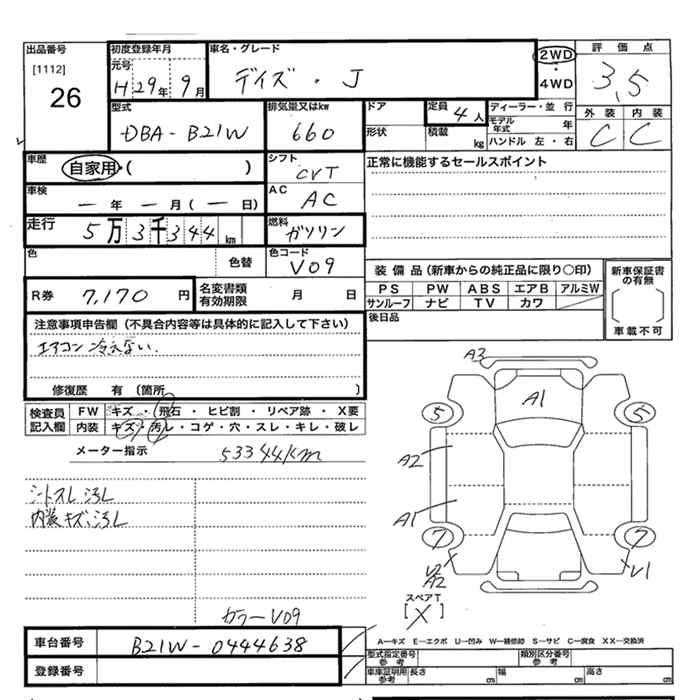 出品番号
[1112]
26
初度登録年月
元号
H29年 9月
車名・グレード
デイズ ・ J
2WD
・
4WD
評価点
3.5
外装 内装
C C
型式
DBA-B21W
排気量又はkw
660
ドア
形状
定員 4人
積載 kg
ディーラー・並 行
モデル年式 年
ハンドル 左・右
車歴
自家用・( )
シフト
CVT
正常に機能するセールスポイント
車検
ー年 ー月(ー日)
AC
AC
走行
5万3千344km
燃料
ガソリン
色
色替
色コード
V09
R券 7,170 円
名変書類有効期限 月 日
装備品(新車からの純正品に限り○印)
PS PW ABS エアB アルミW
サンルーフ ナビ TV カワ
新車保証書の有無
車載不可
後日品
注意事項申告欄(不具合内容等は具体的に記入して下さい)
エアコン冷えない.
修復歴 有 〔箇所 〕
検査員記入欄
FW キズ・飛石・ヒビ割・リペア跡・X要
内装 キズ・汚レ・コゲ・穴・スレ・キレ・破レ
メーター指示 53344km
シートスレ汚レ
内装キズ、汚レ
カラーV09
A3
A1
5 5
A2
A1
7 7
A2
V1
スペアT
[X]
車台番号 B21W-0444638
登録番号
A―キズ E―エクボ U―凹み W―補修跡 S―サビ C―腐食 XX―交換済
型式指定番号 参考
類別区分番号 参考
車庫証明用 参考 長さ cm 幅 cm 高さ cm